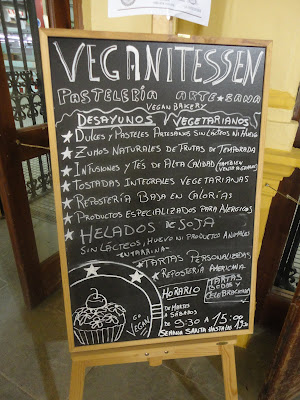 VEGANITESSEN
PASTELERÍA ARTESANA
VEGAN BAKERY
DESAYUNOS VEGETARIANOS
DULCES Y PASTELES ARTESANOS SIN LÁCTEOS NI HUEVO
ZUMOS NATURALES DE FRUTAS DE TEMPORADA
INFUSIONES Y TÉS DE ALTA CALIDAD (TAMBIÉN VENTA A GRANEL)
TOSTADAS INTEGRALES VEGETARIANAS
REPOSTERÍA BAJA EN CALORÍAS
PRODUCTOS ESPECIALIZADOS PARA ALÉRGICOS
HELADOS DE SOJA
SIN LÁCTEOS, HUEVO NI PRODUCTOS ANIMALES
EN TARRINA
TARTAS PERSONALIZADAS
REPOSTERÍA AMERICANA
TARTAS BODAS Y CELEBRACIONES
GO VEGAN
HORARIO
DE MARTES A SÁBADOS
DE 9:30 A 15:00
SEMANA SANTA HASTA LAS